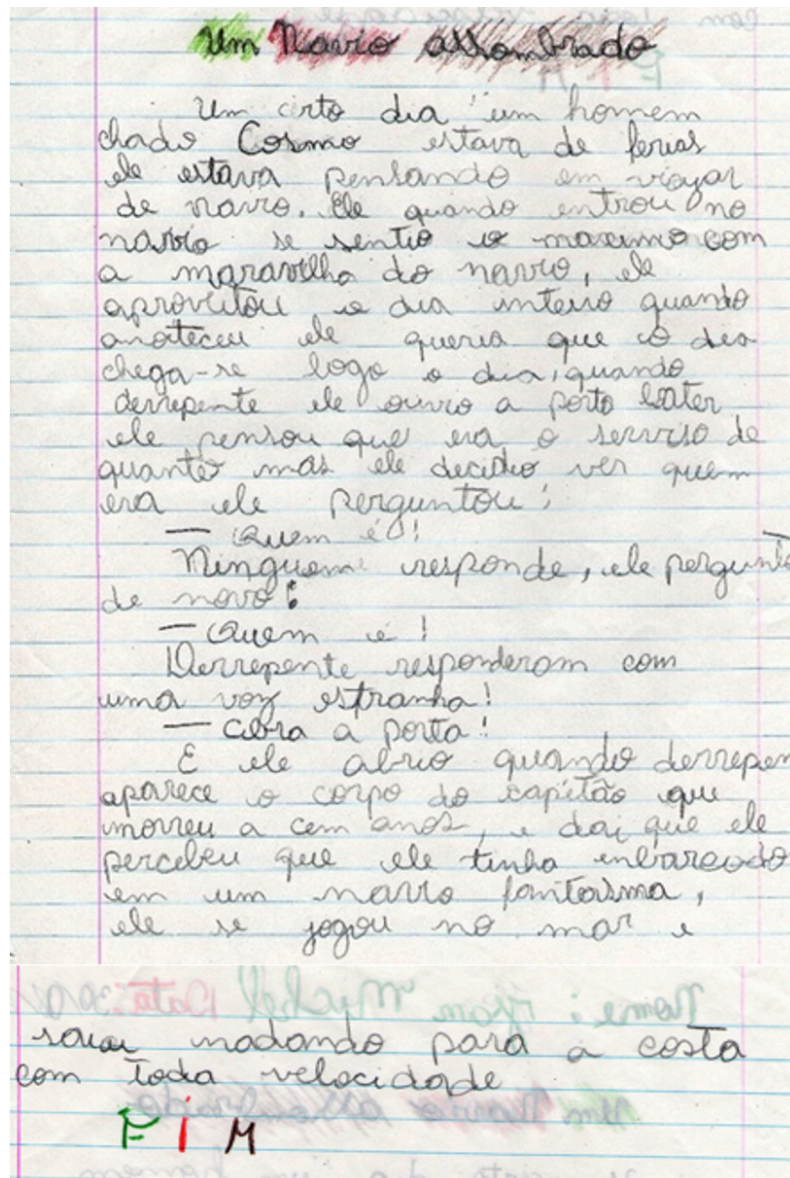 Um Navio assombrado
Um certo dia um homem
chado Cosmo estava de ferias
ele estava pensando em viajar
de navio. Ele quando entrou no
navio se sentio o maximo com
a maravilha do navio, ele
aproveitou o dia inteiro quando
anoiteceu ele queria que o dia
chega-se logo o dia, quando
derrepente ele ouvio a porto bater
ele pensou que era o serviso de
quanto mas ele decidio ver quem
era ele perguntou:
— Quem é!
Ninguem responde, ele pergunto
de novo:
— Quem é!
Derrepente responderam com
uma voz estranha!
— Abra a porta!
E ele abrio quando derrepen
aparece o corpo do capitão que
morreu a cem anos, e dai que ele
percebeu que ele tinha enbarcado
em um navio fantasma,
ele se jogou no mar e
saiu nadando para a costa
com toda velocidade
FIM